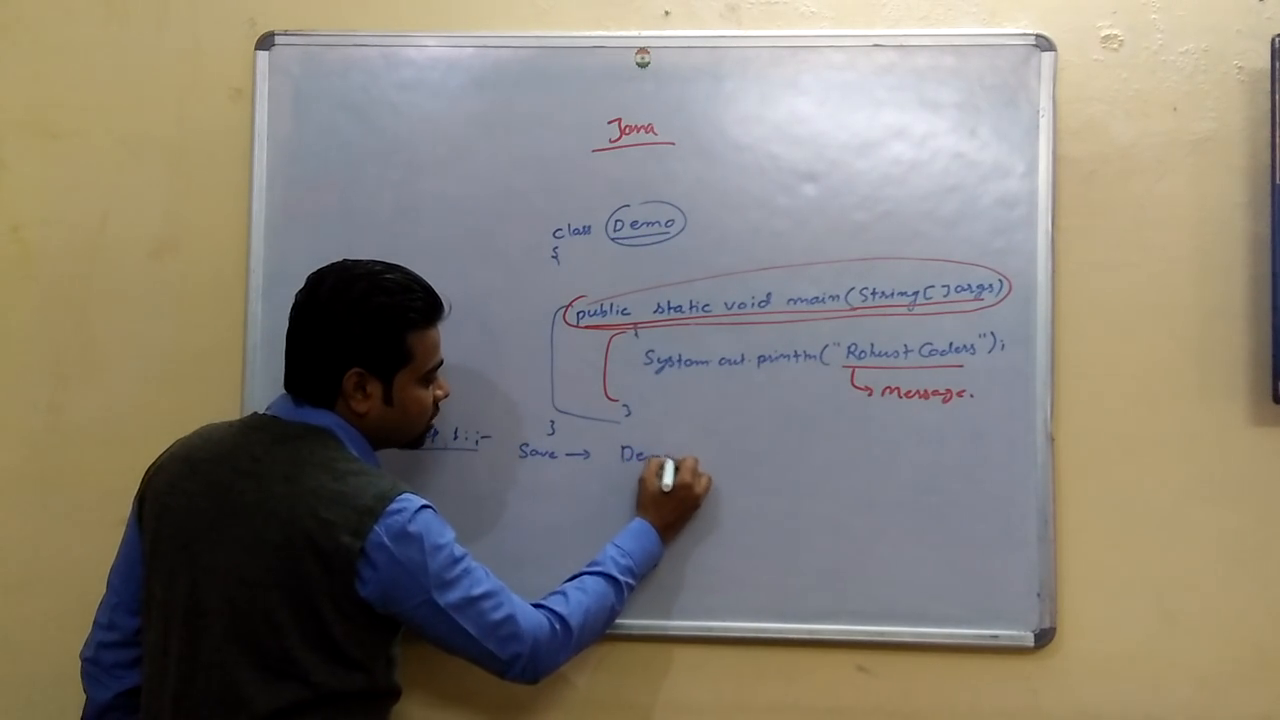 Java
class Demo
{
public static void main(String[] args)
{
System.out.println("Robust Coders");
Message.
}
}
Save → Dem